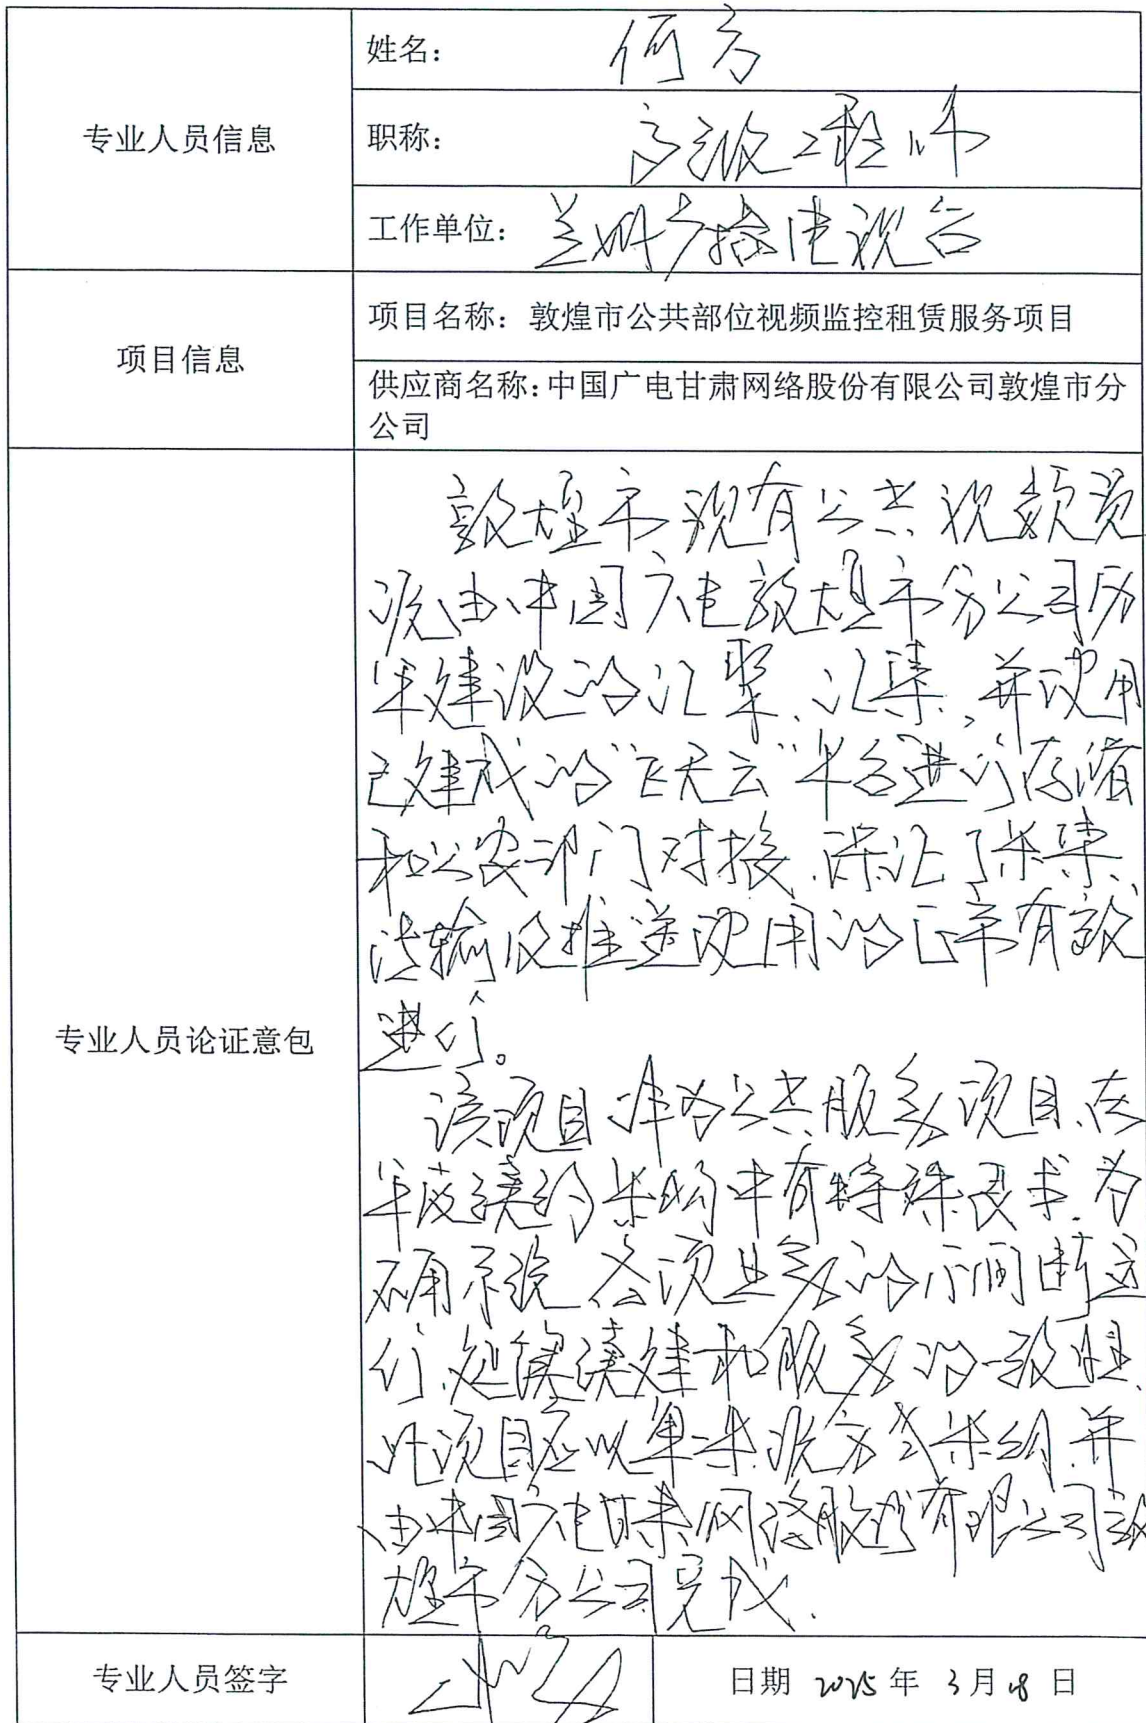 专业人员信息
姓名：何方
职称：高级工程师
工作单位：兰州广播电视台
项目信息
项目名称：敦煌市公共部位视频监控租赁服务项目
供应商名称：中国广电甘肃网络股份有限公司敦煌市分
公司
专业人员论证意包
敦煌市现有公共视频资
源由中国广电敦煌市分公司历
年建设的汇聚、汇集，并使用
已建成的“飞天云”平台进行存储
和公安部门对接，保证了采集、
传输及推送使用的正常有效
进行。
该项目作为公共服务项目，在
年度续约采购中有特殊要求，为
确保 各项业务的不间断运
行，延续建和服务的一致性，
此项目应以单一来源方式采购，并
由中国广电甘肃网络股份有限公司敦
煌市分公司完成。
专业人员签字
日期 2025 年 3月18 日